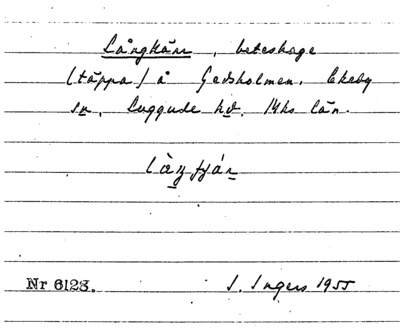 Långkärr, beteshage
(täppa) å Gedsholmen, Ekeby
sn, Luggude hd. Mhs län.
Nr 6123. I. Ingers 1955